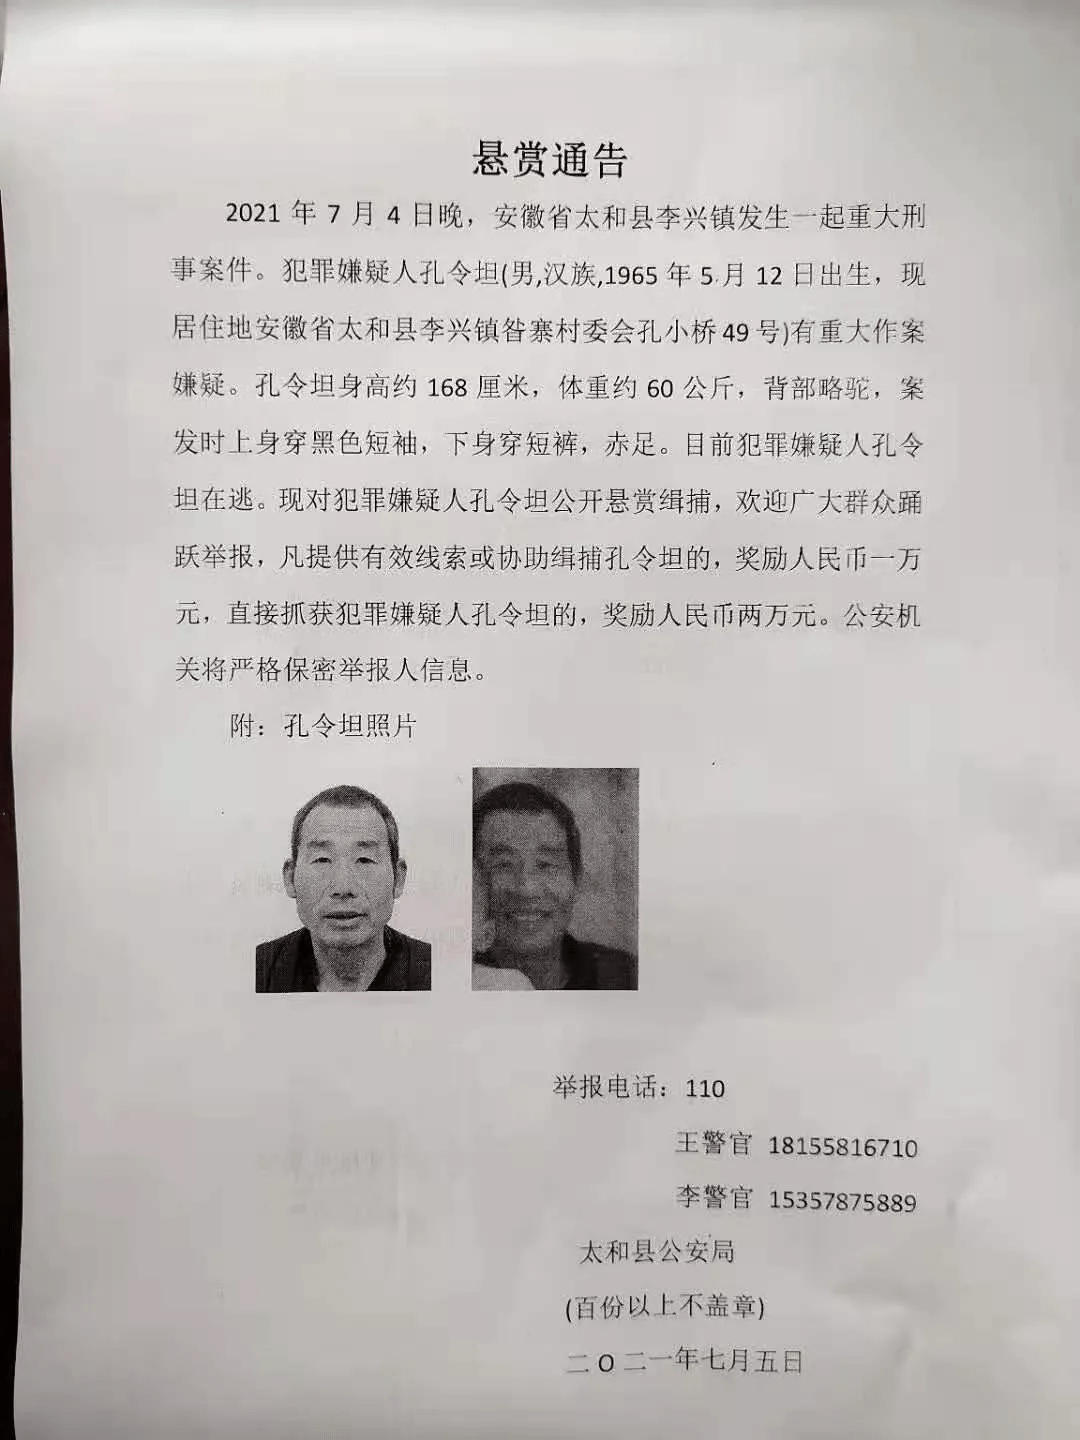 悬赏通告
2021 年 7 月 4 日晚，安徽省太和县李兴镇发生一起重大刑
事案件。犯罪嫌疑人孔令坦(男,汉族,1965 年 5 月 12 日出生，现
居住地安徽省太和县李兴镇昝寨村委会孔小桥 49 号)有重大作案
嫌疑。孔令坦身高约 168 厘米，体重约 60 公斤，背部略驼，案
发时上身穿黑色短袖，下身穿短裤，赤足。目前犯罪嫌疑人孔令
坦在逃。现对犯罪嫌疑人孔令坦公开悬赏缉捕，欢迎广大群众踊
跃举报，凡提供有效线索或协助缉捕孔令坦的，奖励人民币一万
元，直接抓获犯罪嫌疑人孔令坦的，奖励人民币两万元。公安机
关将严格保密举报人信息。
附：孔令坦照片
举报电话：110
王警官 18155816710
李警官 15357875889
太和县公安局
(百份以上不盖章)
二 O 二一年七月五日